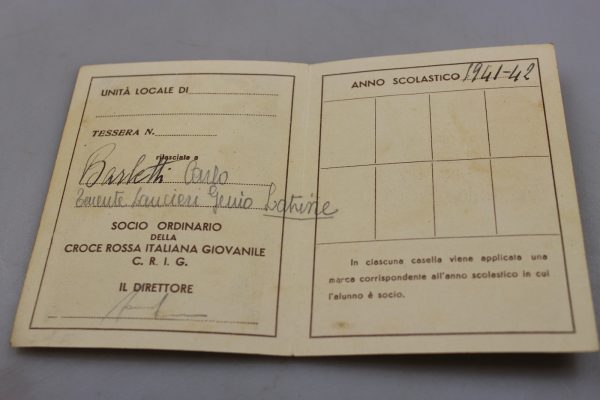 UNITÀ LOCALE DI
TESSERA N.
rilasciata a
Barletti Carlo
Tenente Lancieri Genio Latrine
SOCIO ORDINARIO
DELLA
CROCE ROSSA ITALIANA GIOVANILE
C. R. I. G.
IL DIRETTORE
ANNO SCOLASTICO 1941-42
In ciascuna casella viene applicata una
marca corrispondente all'anno scolastico in cui
l'alunno è socio.